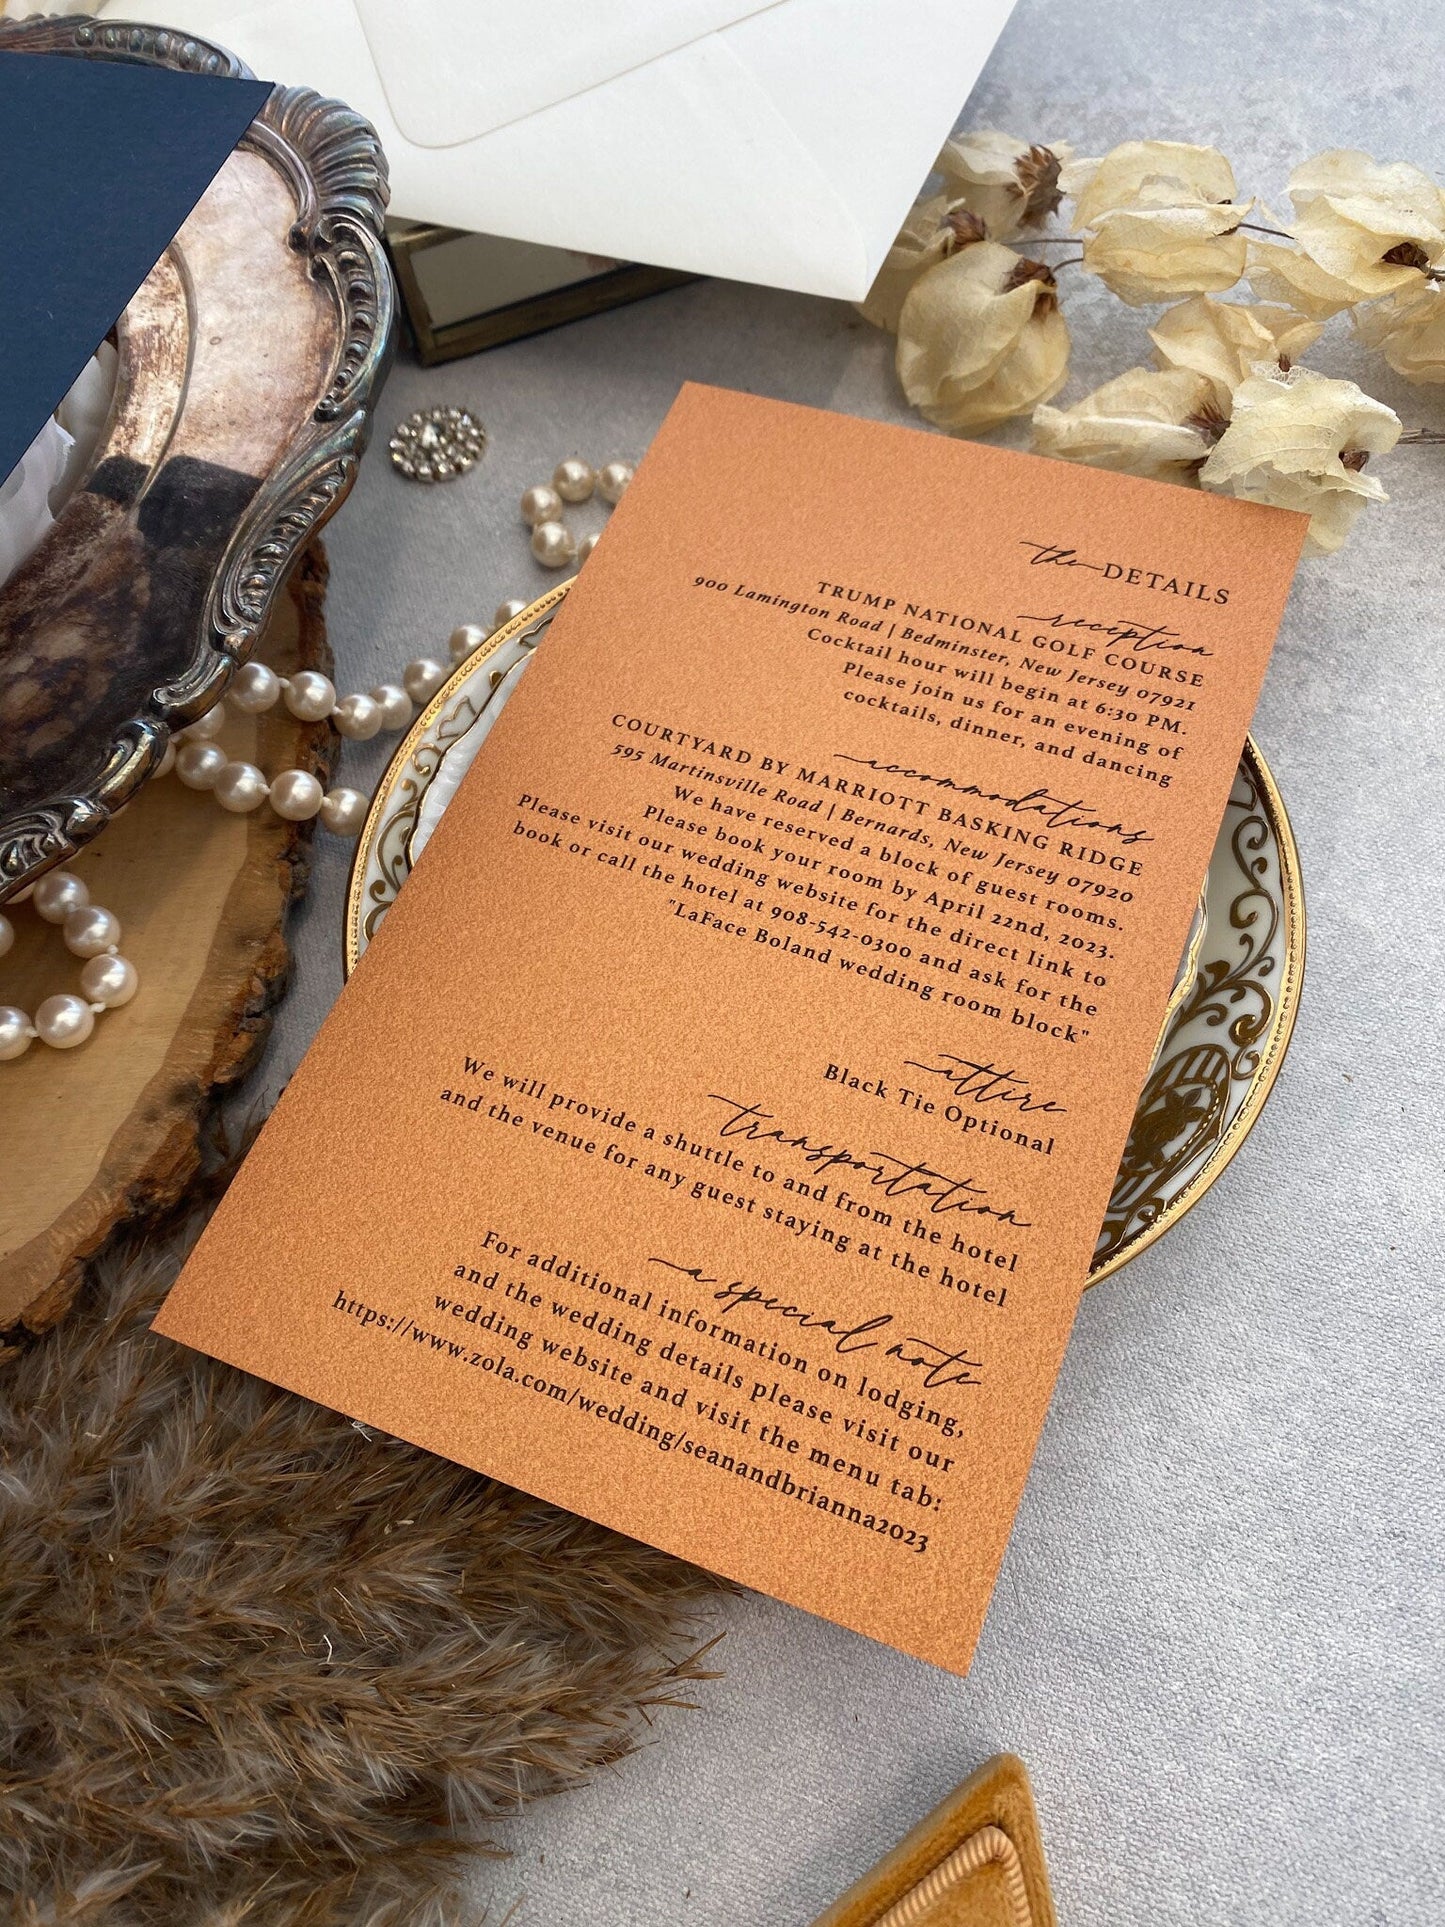 the DETAILS
reception
TRUMP NATIONAL GOLF COURSE
900 Lamington Road | Bedminster, New Jersey 07921
Cocktail hour will begin at 6:30 PM.
Please join us for an evening of
cocktails, dinner, and dancing
accommodations
COURTYARD BY MARRIOTT BASKING RIDGE
595 Martinsville Road | Bernards, New Jersey 07920
We have reserved a block of guest rooms.
Please book your room by April 22nd, 2023.
Please visit our wedding website for the direct link to
book or call the hotel at 908-542-0300 and ask for the
"LaFace Boland wedding room block"
attire
Black Tie Optional
transportation
We will provide a shuttle to and from the hotel
and the venue for any guest staying at the hotel
a special note
For additional information on lodging,
and the wedding details please visit our
wedding website and visit the menu tab:
https://www.zola.com/wedding/seanandbrianna2023